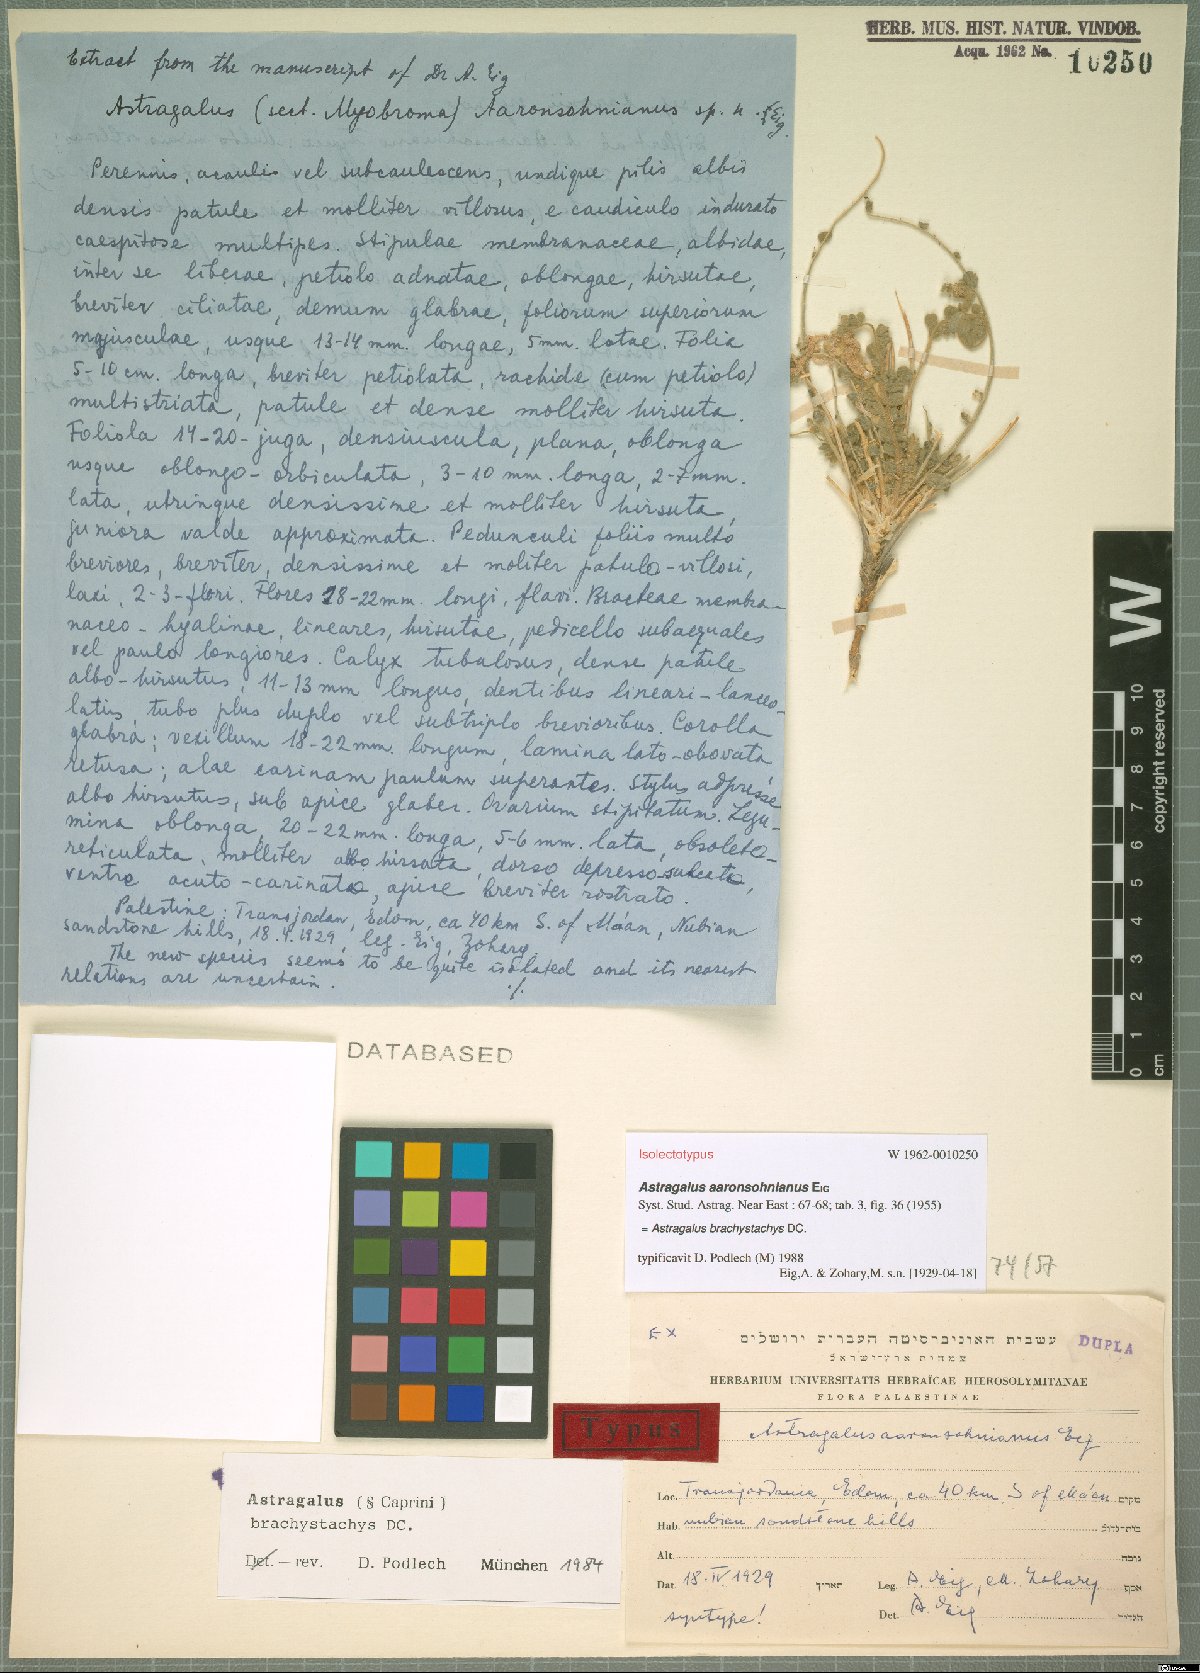 HERB. MUS. HIST. NATUR. VINDOB.
Acqu. 1962 No. 10250
Extract from the manuscript of Dr A. Eig
Astragalus (sect. Myobroma) Aaronsohnianus sp. n. Eig.
Perennis, acaulis vel subcaulescens, undique pilis albis
densis patule et molliter villosus, e caudiculo indurato
caespitose multipes. Stipulae membranaceae, albidae,
inter se liberae, petiolo adnatae, oblongae, hirsutae,
breviter ciliatae, demum glabrae, foliorum superiorum
majusculae, usque 13-14 mm. longae, 5mm. latae. Folia
5-10 cm. longa, breviter petiolata, rachide (cum petiolo)
multistriata, patule et dense molliter hirsuta.
Foliola 14-20-juga, densiuscula, plana, oblonga
usque oblongo-orbiculata, 3-10 mm. longa, 2-7mm.
lata, utrinque densissime et molliter hirsuta,
juniora valde approximata. Pedunculi foliis multo
breviores, breviter, densissime et moliter patulo-villosi,
laxi, 2-3-flori. Flores 18-22mm. longi, flavi. Bracteae membra-
naceo-hyalinae, lineares, hirsutae, pedicello subaequales
vel paulo longiores. Calyx tubulosus, dense patule
albo-hirsutus, 11-13 mm longus, dentibus lineari-lanceo-
latis, tubo plus duplo vel subtriplo brevioribus. Corolla
glabra; vexillum 18-22 mm. longum, lamina lato-obovata,
retusa; alae carinam paulum superantes. Stylus adpresse
albo hirsutus, sub apice glaber. Ovarium stipitatum. Legu-
mina oblonga, 20-22 mm. longa, 5-6 mm. lata, obsolete-
reticulata, molliter albo hirsuta, dorso depresso sulcata,
ventre acuto-carinata, apice breviter rostrato.
Palestine: Transjordan, Edom, ca 40 km S. of Máan, Nubian
sandstone hills, 18.4.1929, leg. Eig, Zohary
The new species seems to be quite isolated and its nearest
relations are uncertain.
./.
W
10
9
8
7
6
5
4
3
2
1
0
cm
copyright reserved
DATABASED
Isolectotypus W 1962-0010250
Astragalus aaronsohnianus EIG
Syst. Stud. Astrag. Near East : 67-68; tab. 3, fig. 36 (1955)
= Astragalus brachystachys DC.
typificavit D. Podlech (M) 1988
Eig,A. & Zohary,M. s.n. [1929-04-18]
74/57
EX
עשבית האוניברסיטה העברית ירושלים
צמחית ארץ-ישראל
DUPLA
HERBARIUM UNIVERSITATIS HEBRAÏCAE HIEROSOLYMITANAE
FLORA PALAESTINAE
Typus
Astragalus aaronsohnianus Eig
Loc. Transjordania, Edom, ca 40 km S of Máan מקום
Hab. nubian sandstone hills בית-גדול
Alt. גובה
Dat. 18.IV.1929 תאריך Leg. A. Eig, M. Zohary אסף
syntype! Det. A. Eig הגדיר
Astragalus (§ Caprini)
brachystachys DC.
Det. — rev. D. Podlech München 1984